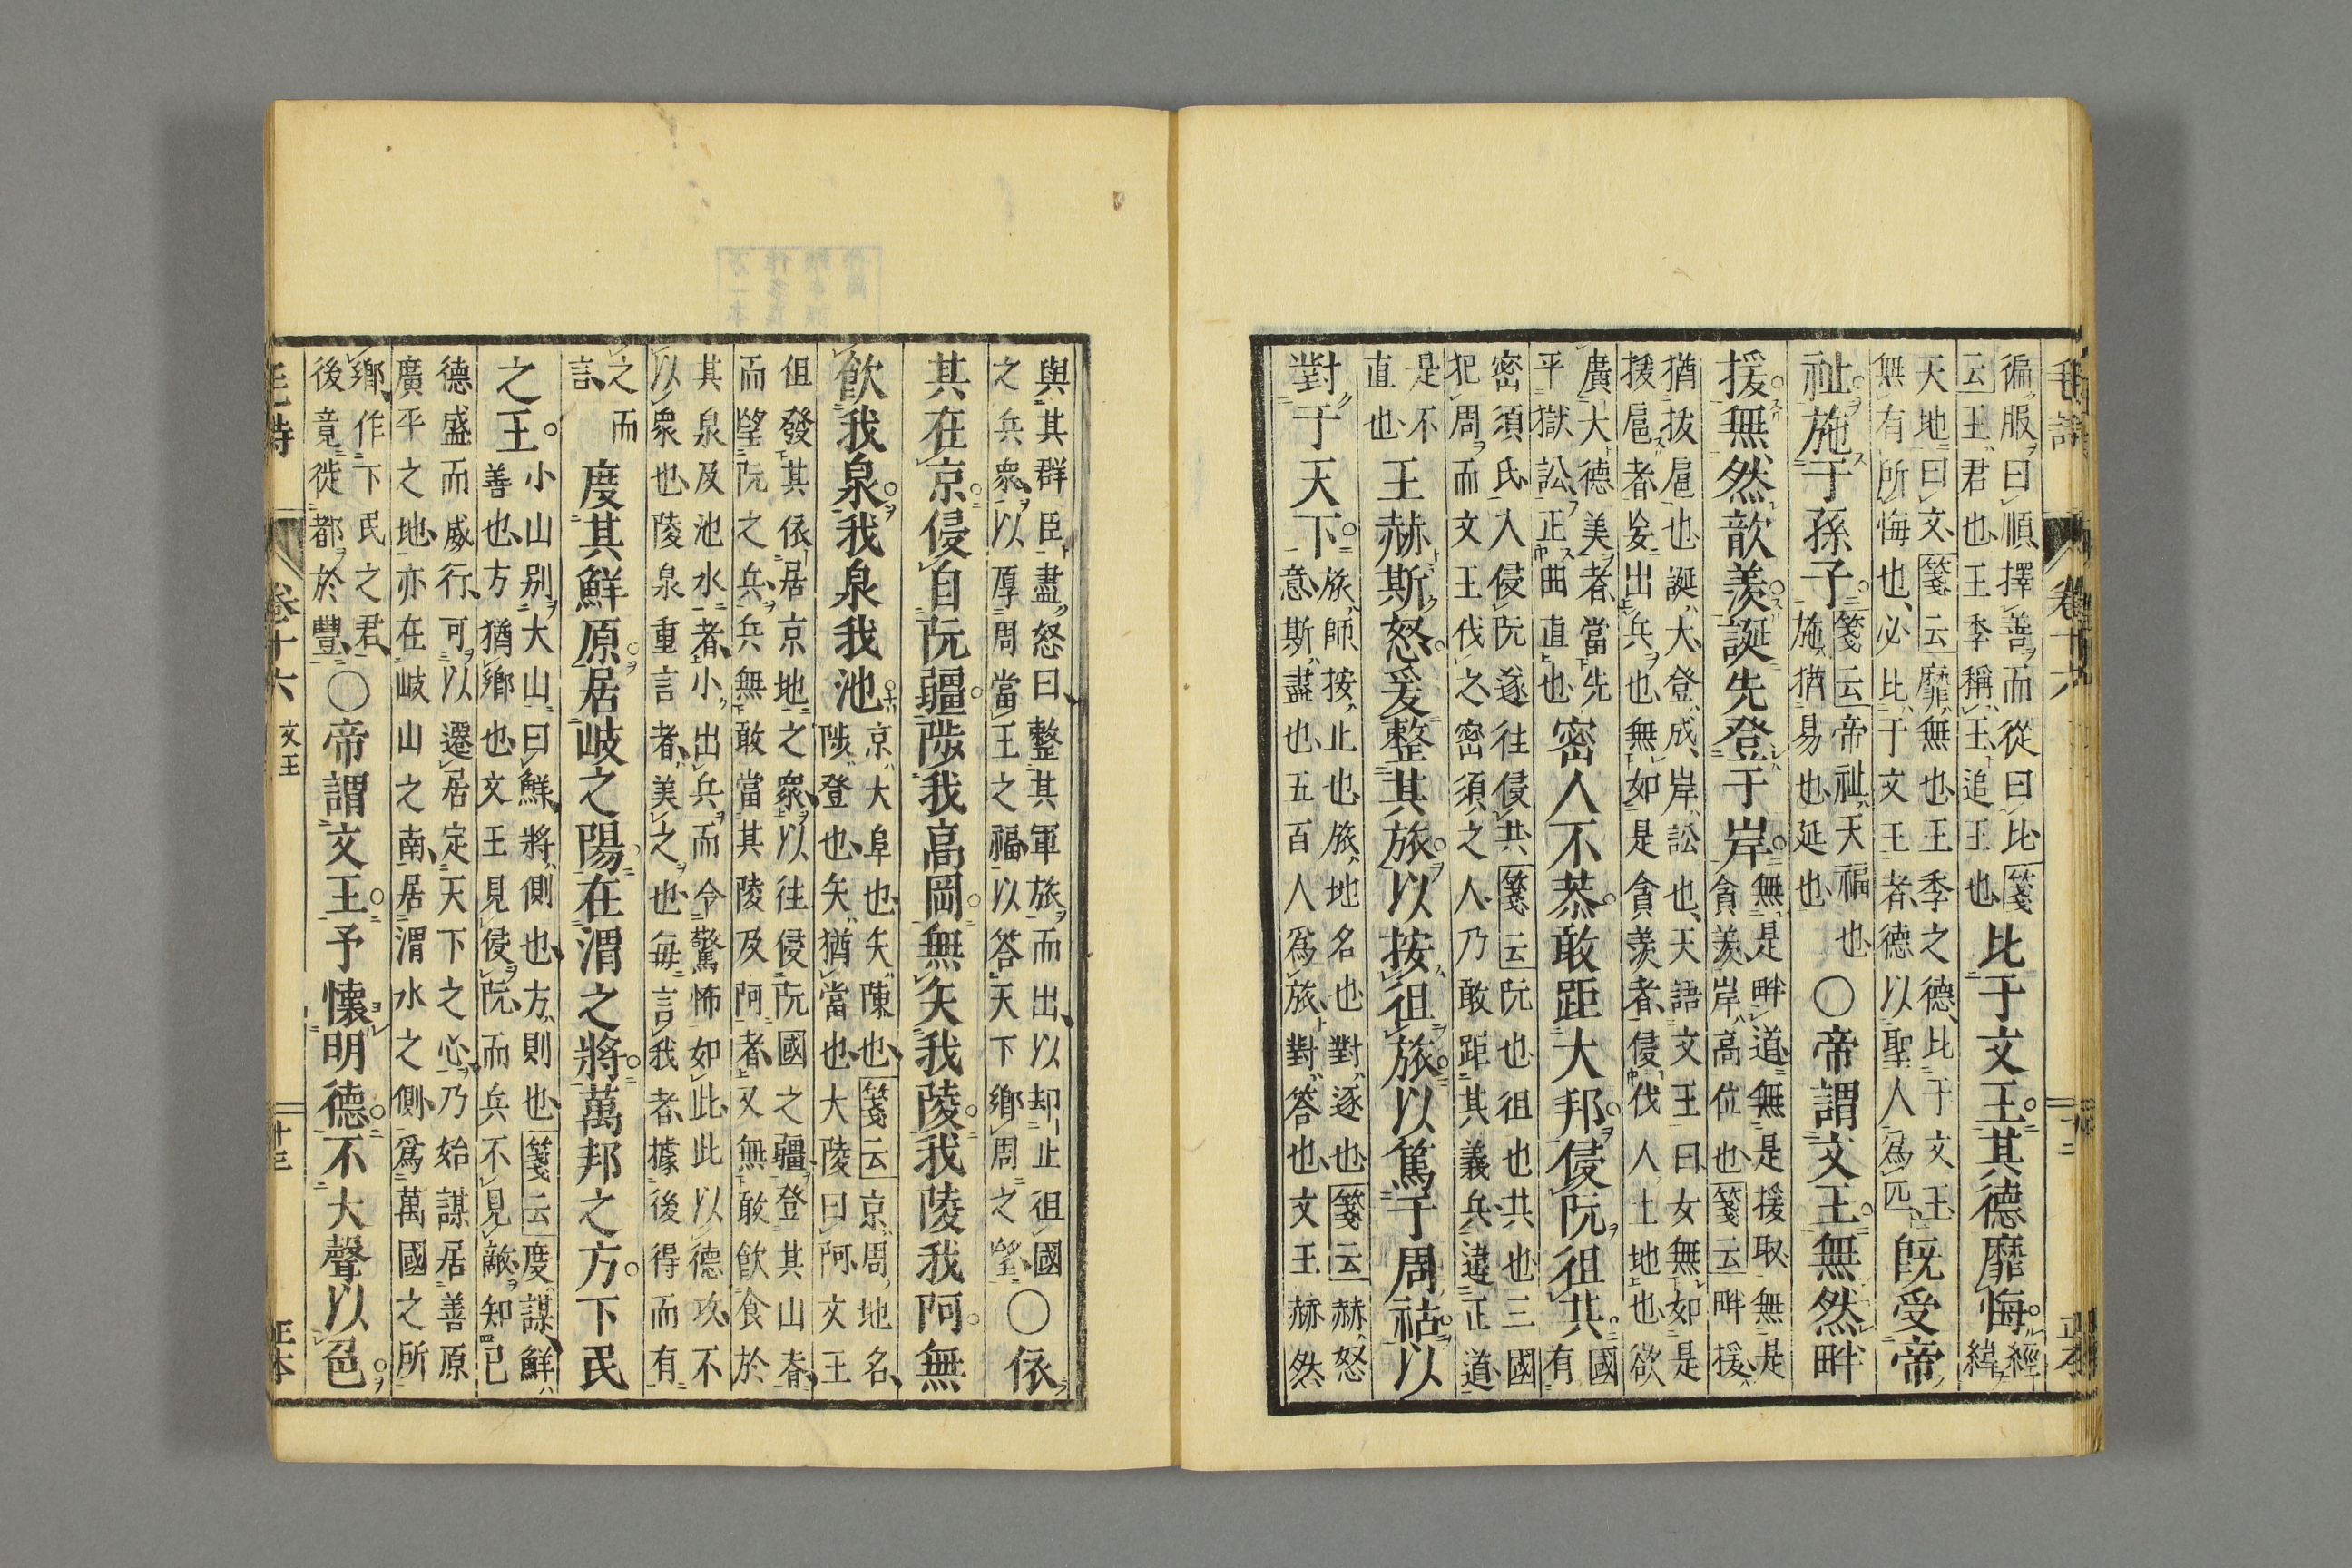 毛詩　卷十六　十二　正本
徧服曰順擇善而從曰比箋
云王君也王季稱王追王也
比于文王其德靡悔
經
緯
天地曰文箋云靡無也王季之德比于文王
無有所悔也必比于文王者德以聖人爲匹
既受帝
祉施于孫子
箋云帝祉天福也
施猶易也延也
○帝謂文王無然畔
援無然歆羨誕先登于岸
無是畔道無是援取無是
貪羨岸高位也箋云畔援
猶拔扈也誕大登成岸訟也天語文王曰女無如是
援扈者妄出兵也無如是貪羨者侵伐人土地也欲
廣大德美者當先
平獄訟正曲直也
密人不恭敢距大邦侵阮徂共
國
有
密須氏入侵阮遂往侵共箋云阮也徂也共也三國
犯周而文王伐之密須之人乃敢距其義兵違正道
是不
直也
王赫斯怒爰整其旅以按徂旅以篤于周祜以
對于天下
旅師按止也旅地名也對遂也箋云赫怒
意斯盡也五百人爲旅對答也文王赫然
與其群臣盡怒曰整其軍旅而出以却止徂國
之兵衆以厚周當王之福以答天下鄉周之望
○依
其在京侵自阮疆陟我高岡無矢我陵我陵我阿無
飲我泉我泉我池
京大阜也矢陳也箋云京周地名
陟登也矢猶當也大陵曰阿文王
徂發其依居京地之衆以往侵阮國之疆登其山脊
而望阮之兵兵無敢當其陵及阿者又無敢飲食於
其泉及池水者小出兵而令驚怖如此此以德攻不
以衆也陵泉重言者美之也每言我者據後得而有
之而
言
度其鮮原居岐之陽在渭之將萬邦之方下民
之王
小山別大山曰鮮將側也方則也箋云度謀鮮
善也方猶鄉也文王見侵阮而兵不見敵知已
德盛而威行可以遷居定天下之心乃始謀居善原
廣平之地亦在岐山之南居渭水之側爲萬國之所
鄉作下民之君
後竟徙都於豐
○帝謂文王予懷明德不大聲以色
毛詩　卷十六　文王　十三　正本